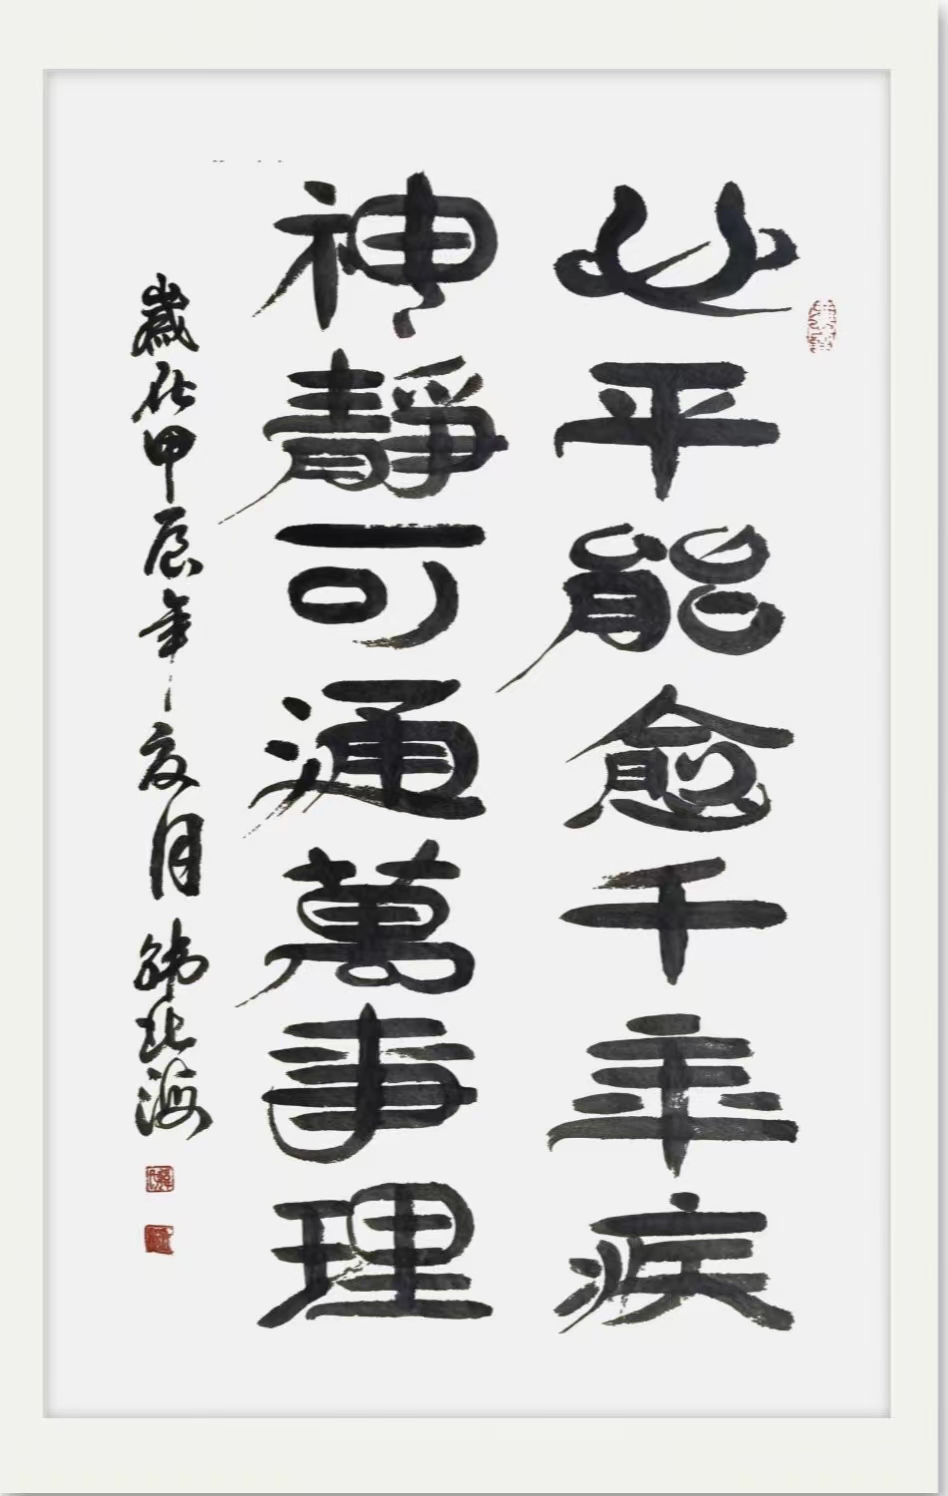 心平能愈千年疾
神靜可通萬事理
歲在甲辰年夏月韓北海